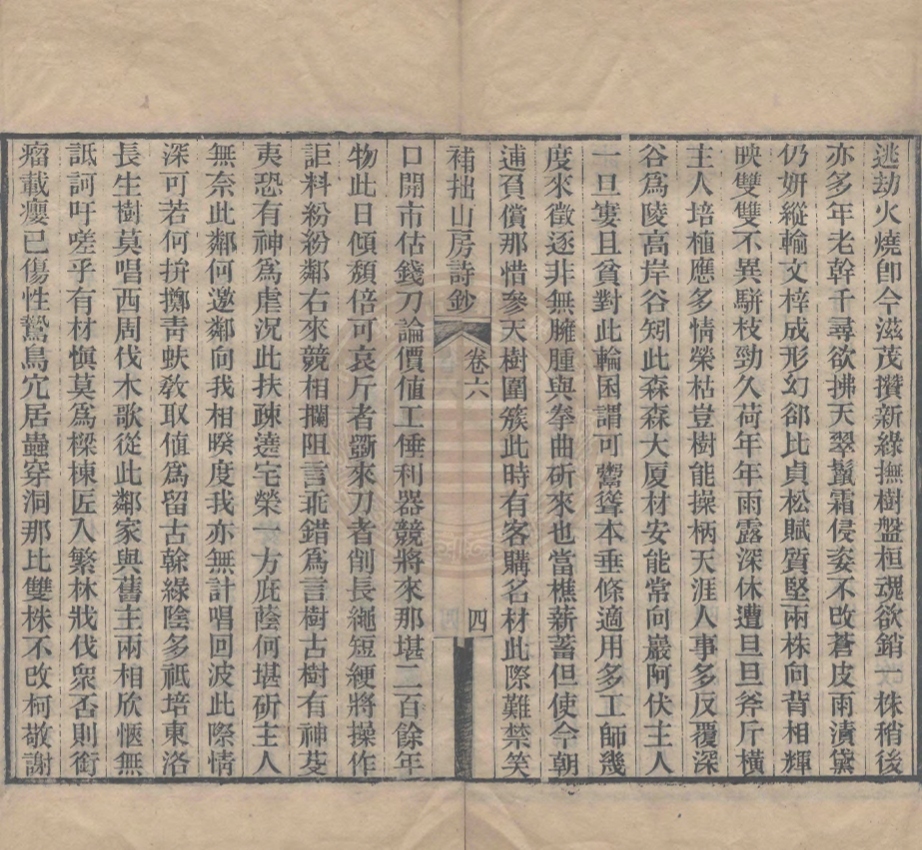 逃劫火燒卽今滋茂攢新綠撫樹盤桓魂欲銷一株稍後
亦多年老幹千尋欲拂天翠鬣霜侵姿不改蒼皮雨漬黛
仍妍縱輸文梓成形幻郤比貞松賦質堅兩株向背相輝
映雙雙不異駢枝勁久荷年年雨露深休遭旦旦斧斤橫
主人培植應多情榮枯豈樹能操柄天涯人事多反覆深
谷爲陵高岸谷矧此森森大厦材安能常向巖阿伏主人
一旦寠且貧對此輪囷謂可鬻聳本垂條適用多工師幾
度來徵逐非無臃腫與拳曲斫來也當樵薪蓄但使今朝
逋負償那惜參天樹圍簇此時有客購名材此際難禁笑
補拙山房詩鈔 卷六 四
口開市估錢刀論價値工倕利器競將來那堪二百餘年
物此日傾頽倍可哀斤者斵來刀者削長繩短綆將操作
詎料紛紛鄰右來競相攔阻言乖錯爲言樹古樹有神芟
夷恐有神爲虐況此扶疎遶宅榮一方庇蔭何堪斫主人
無奈此鄰何邀鄰向我相暌度我亦無計唱回波此際情
深可若何拚擲靑蚨敎取値爲留古榦綠陰多祗培東洛
長生樹莫唱西周伐木歌從此鄰家與舊主兩相欣愜無
詆訶吁嗟乎有材愼莫爲樑棟匠入繁林戕伐衆否則銜
瘤載癭已傷性鷙鳥穴居蟲穿洞那比雙株不改柯敬謝